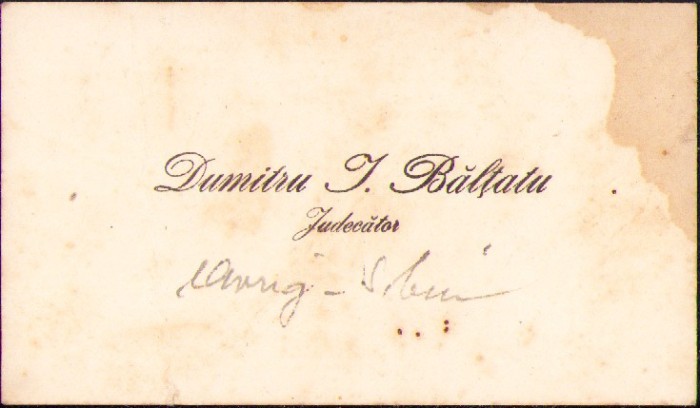 Dumitru I. Bălțatu
Judecător
Avrig - Sibiu